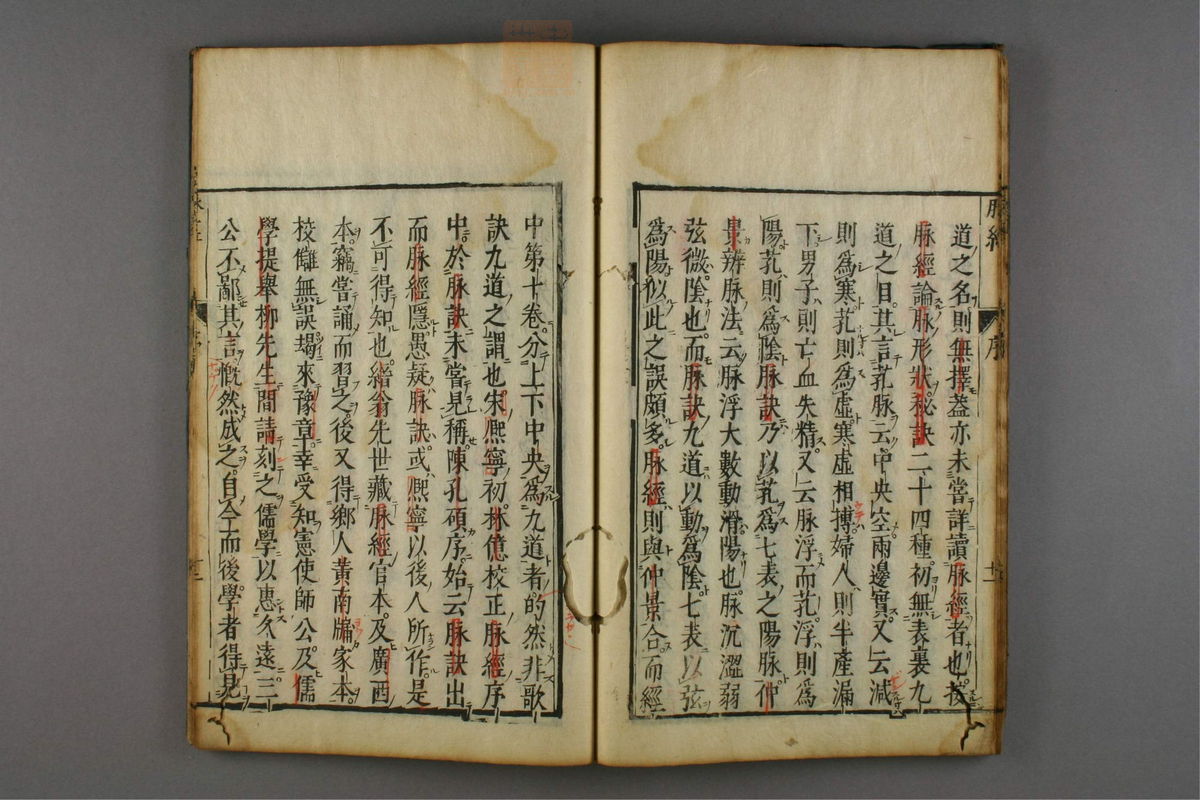 道之名則無擇蓋亦未嘗詳讀脉經者也按
脉經論脉形狀秘訣二十四種初無表裏九
道之目其言芤脉云中央空兩邊實又云減
則為寒芤則為虛寒虛相搏婦人則半產漏
下男子則亡血失精又云脉浮而芤浮則為
陽芤則為陰脉訣乃以芤為七表之陽脉仲
景辨脉法云脉浮大數動滑陽也脉沉澀弱
弦微陰也而脉訣九道以動為陰七表以弦
為陽似此之誤頗多脉經則與仲景合而經
中第十卷分上下中央為九道者的然非歌
訣九道之謂也宋熈寧初林億校正脉經序
中於脉訣未嘗見稱陳孔碩序始云脉訣出
而脉經隱愚疑脉訣或熈寧以後人所作是
不可得知也縉翁先世藏脉經官本及廣西
本竊嘗誦而習之後又得鄉人黃南牖家本
校讎無誤朅來豫章幸受知憲使師公及儒
學提舉柳先生間請刻之儒學以惠久遠三
公不鄙其言慨然成之自今而後學者得見
脉經
序